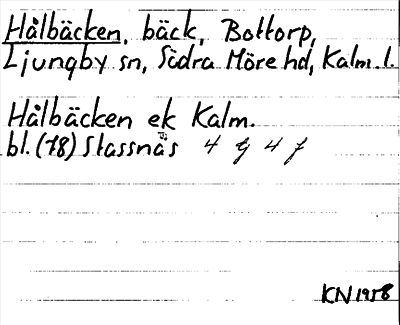 Hålbäcken, bäck, Bottorp,
Ljungby sn, Södra Möre hd, Kalm. l.
Hålbäcken ek Kalm.
bl. (78) Stassnäs 4 g 4 f
KN 1958